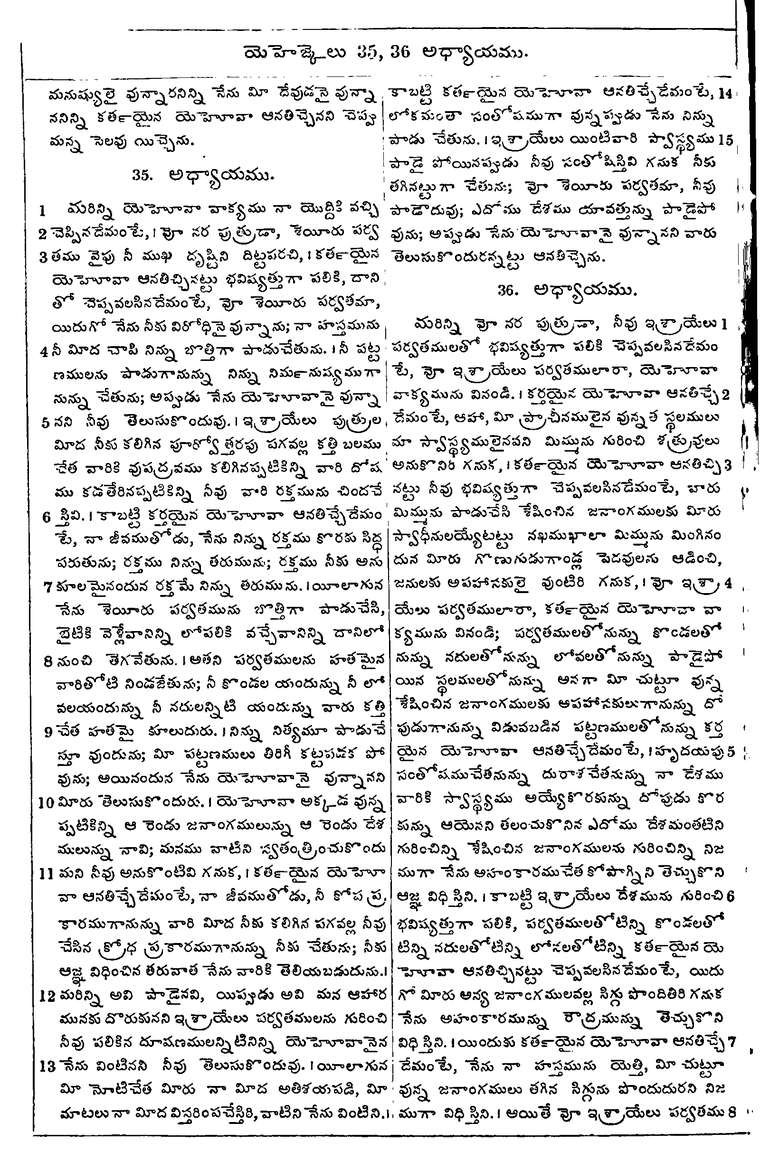 యెహెజ్కేలు 35, 36 అధ్యాయము.
మనుష్యులై వున్నారనిన్ని నేను మీ దేవుడనై వున్నా
ననిన్ని కర్తయైన యెహోవా ఆనతిచ్చెనని చెప్పు
మన్న సెలవు యిచ్చెను.
35. అధ్యాయము.
1 మరిన్ని యెహోవా వాక్యము నా యొద్దికి వచ్చి
2 చెప్పినదేమంటే, । హో నర పుత్రుడా, శెయీరు పర్వ
3 తము వైపు నీ ముఖ దృష్టిని దిట్టపరచి, । కర్తయైన
యెహోవా ఆనతిచ్చినట్టు భవిష్యత్తుగా పలికి, దాని
తో చెప్పవలసినదేమంటే, హో శెయీరు పర్వతమా,
యిదుగో నేను నీకు విరోధినై వున్నాను; నా హస్తమును
4 నీ మీద చాపి నిన్ను బొత్తిగా పాడుచేతును. । నీ పట్ట
ణములను పాడుగానున్ను నిన్ను నిర్మనుష్యముగా
నున్ను చేతును; అప్పుడు నేను యెహోవానై వున్నా
5 నని నీవు తెలుసుకొందువు. । ఇశ్రాయేలు పుత్రుల
మీద నీకు కలిగిన పూర్వోత్తరపు పగవల్ల కత్తి బలము
చేత వారికి వుపద్రవము కలిగినప్పటికిన్ని వారి దోష
ము కడతేరినప్పటికిన్ని నీవు వారి రక్తమును చిందచే
6 స్తివి. । కాబట్టి కర్తయైన యెహోవా ఆనతిచ్చేదేమం
టే, నా జీవముతోడు, నేను నిన్ను రక్తము కొరకు సిద్ధ
పరుతును; రక్తము నిన్ను తరుమును; రక్తము నీకు అను
7 కూలమైనందున రక్తమే నిన్ను తరుమును. । యీలాగున
నేను శెయీరు పర్వతమును బొత్తిగా పాడుచేసి,
బైటికి వెళ్లేవానిన్ని లోపలికి వచ్చేవానిన్ని దానిలో
8 నుంచి తెగవేతును. । అతని పర్వతములను హతమైన
వారితోటి నిండజేతును; నీ కొండల యందున్ను నీ లో
వలయందున్ను నీ నదులన్నిటి యందున్ను వారు కత్తి
9 చేత హతమై కూలుదురు. । నిన్ను నిత్యమూ పాడుచే
స్తూ వుందును; మీ పట్టణములు తిరిగీ కట్టపడక పో
వును; అయినందున నేను యెహోవానై వున్నానని
10 మీరు తెలుసుకొందురు. । యెహోవా అక్కడ వున్న
ప్పటికిన్ని ఆ రెండు జనాంగములున్ను ఆ రెండు దేశ
ములున్ను నావి; మనము వాటిని స్వతంత్రించుకొందు
11 మని నీవు అనుకొంటివి గనుక, । కర్తయైన యెహో
వా ఆనతిచ్చేదేమంటే, నా జీవముతోడు, నీ కోప ప్ర
కారముగానున్ను వారి మీద నీకు కలిగిన పగవల్ల నీవు
చేసిన క్రోధ ప్రకారముగానున్ను నీకు చేతును; నీకు
ఆజ్ఞ విధించిన తరువాత నేను వారికి తెలియబడుదును. ।
12 మరిన్ని అవి పాడైనవి, యిప్పుడు అవి మన ఆహార
మునకు దొరుకునని ఇశ్రాయేలు పర్వతములను గురించి
నీవు పలికిన దూషణములన్నిటినిన్ని యెహోవానైన
13 నేను వింటినని నీవు తెలుసుకొందువు. । యీలాగున
మీ నోటిచేత మీరు నా మీద అతిశయపడి, మీ
మాటలు నా మీద విస్తరింపచేస్తిరి, వాటిని నేను వింటిని. ।
కాబట్టి కర్తయైన యెహోవా ఆనతిచ్చేదేమంటే, 14
లోకమంతా సంతోషముగా వున్నప్పుడు నేను నిన్ను
పాడు చేతును. । ఇశ్రాయేలు యింటివారి స్వాస్థ్యము 15
పాడై పోయినప్పుడు నీవు సంతోషిస్తివి గనుక నీకు
తగినట్టుగా చేతును; హో శెయీరు పర్వతమా, నీవు
పాడౌదువు; ఎదోము దేశము యావత్తున్ను పాడైపో
వును; అప్పుడు నేను యెహోవానై వున్నానని వారు
తెలుసుకొందురన్నట్టు ఆనతిచ్చేను.
36. అధ్యాయము.
మరిన్ని హో నర పుత్రుడా, నీవు ఇశ్రాయేలు 1
పర్వతములతో భవిష్యత్తుగా పలికి చెప్పవలసినదేమం
టే, హో ఇశ్రాయేలు పర్వతములారా, యెహోవా
వాక్యమును వినండి. । కర్తయైన యెహోవా ఆనతిచ్చే 2
దేమంటే, ఆహా, మీ ప్రాచీనములైన వున్నత స్థలములు
మా స్వాస్థ్యములైనవని మిమ్మును గురించి శత్రువులు
అనుకొనిరి గనుక, । కర్తయైన యెహోవా ఆనతిచ్చి 3
నట్టు నీవు భవిష్యత్తుగా చెప్పవలసినదేమంటే, వారు
మిమ్మును పాడుచేసి శేషించిన జనాంగములకు మీరు
స్వాధీనులయ్యేటట్టు నఖముఖాలా మిమ్మును మింగినం
దున మీరు గొణుగుడుగాండ్ల పెదవులను ఆడించి,
జనులకు అపహాసకులై వుంటిరి గనుక, । హో ఇశ్రా 4
యేలు పర్వతములారా, కర్తయైన యెహోవా వా
క్యమును వినండి; పర్వతములతోనున్ను కొండలతో
నున్ను నదులతోనున్ను లోవలతోనున్ను పాడైపో
యిన స్థలములతోనున్ను అనగా మీ చుట్టూ వున్న
శేషించిన జనాంగములకు అపహాసకులుగానున్ను దో
పుడుగానున్ను విడువబడిన పట్టణములతోనున్ను కర్త
యైన యెహోవా ఆనతిచ్చేదేమంటే, । హృదయపు 5
సంతోషముచేతనున్ను దురాశచేతనున్ను నా దేశము
వారికి స్వాస్థ్యము అయ్యేకొరకున్ను దోపుడు కొర
కున్ను ఆయెనని తలంచుకొనిన ఎదోము దేశమంతటిని
గురించిన్ని శేషించిన జనాంగములను గురించిన్ని నిజ
ముగా నేను అహంకారముచేత కోపాగ్ని తెచ్చుకొని
ఆజ్ఞ విధిస్తిని. । కాబట్టి ఇశ్రాయేలు దేశమును గురించి 6
భవిష్యత్తుగా పలికి, పర్వతములతోటిన్ని కొండలతో
టిన్ని నదులతోటిన్ని లోవలతోటిన్ని కర్తయైన యె
హోవా ఆనతిచ్చినట్టు చెప్పవలసినదేమంటే, యిదు
గో మీరు అన్య జనాంగములవల్ల సిగ్గు పొందితిరి గనుక
నేను అహంకారమున్ను రౌద్రమున్ను తెచ్చుకొని
విధిస్తిని. । యిందుకు కర్తయైన యెహోవా ఆనతిచ్చే 7
దేమంటే, నేను నా హస్తమును యెత్తి, మీ చుట్టూ
వున్న జనాంగములు తగిన సిగ్గును పొందుదురని నిజ
ముగా విధిస్తిని. । అయితే హో ఇశ్రాయేలు పర్వతము 8